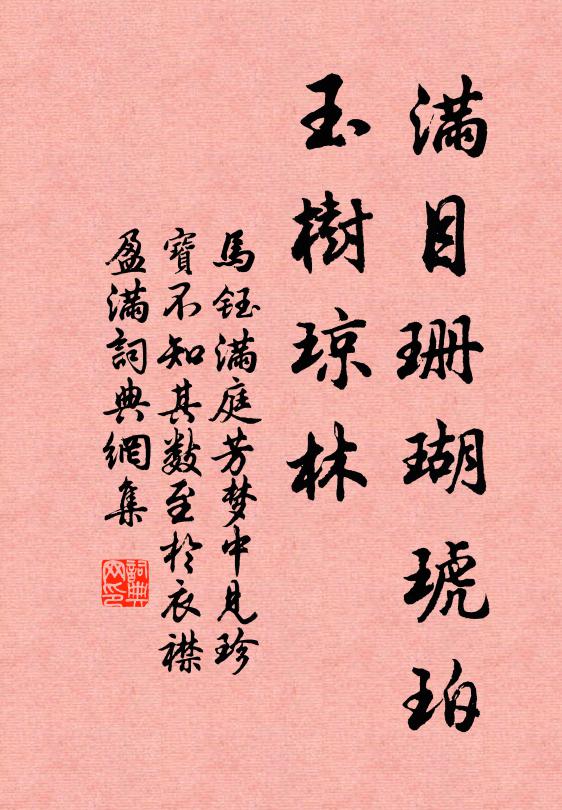 滿目珊瑚琥珀
玉樹琼林
馬鈺滿庭芳梦中見珍
寶不知其數至於衣襟
盈滿詞典網集
詞典
网印